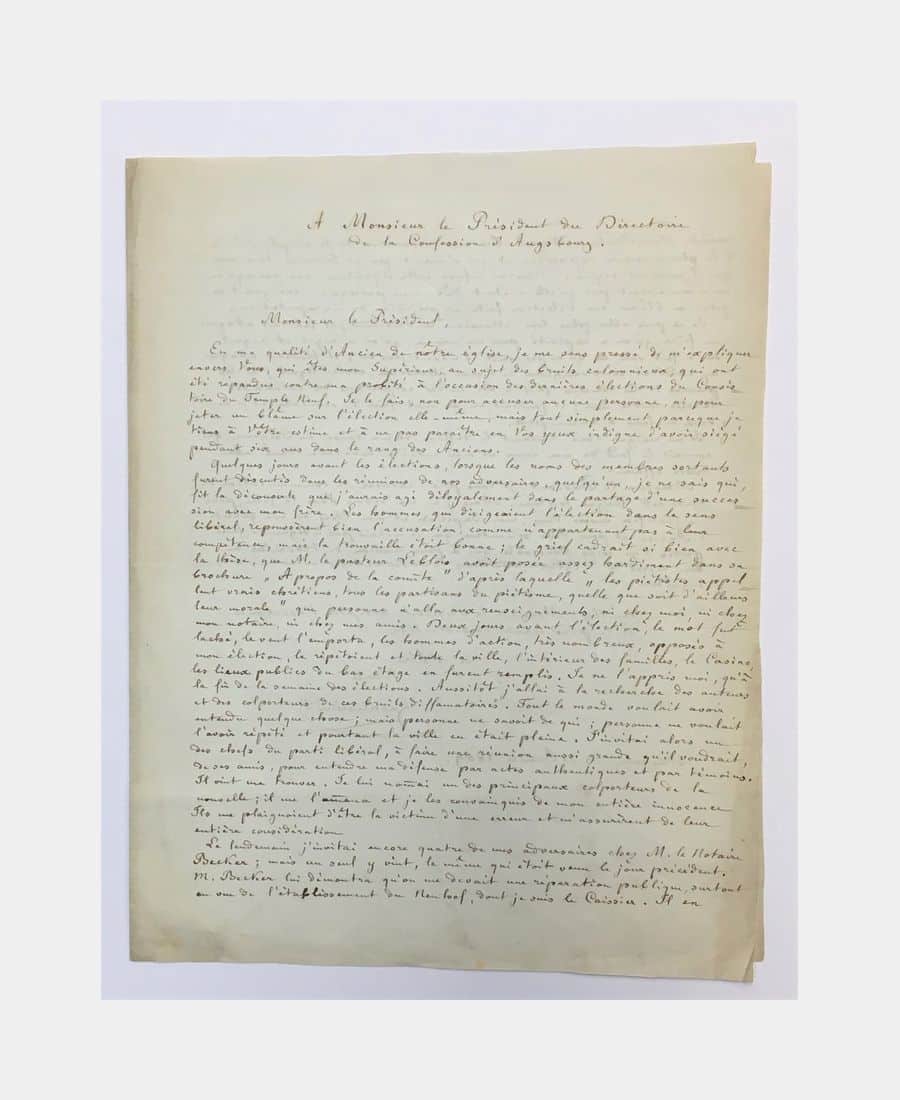 A Monsieur le Président du Directoire
de la Confession d'Augsbourg.
Monsieur le Président,
En ma qualité d'Ancien de nôtre église, je me sens pressé de m'expliquer
envers Vous, qui êtes mon Supérieur, au sujet des bruits calomnieux, qui ont
été répandus contre ma probité, à l'occasion des dernières élections du Consis
toire du Temple Neuf. Je le fais, non pour accuser aucune personne, ni pour
jeter un blâme sur l'élection elle-même, mais tout simplement parceque je
tiens à Vôtre estime et à ne pas paraître en Vos yeux indigne d'avoir siégé
pendant six ans dans le rang des Anciens.
Quelques jours avant les élections, lorsque les noms des membres sortants
furent discutés dans les réunions de nos adversaires, quelqu'un, je ne sais qui,
fit la découverte que j'aurais agi déloyalement dans le partage d'une succes
sion avec mon frère. Les hommes, qui dirigeaient l'élection dans le sens
libéral, repoussèrent bien l'accusation comme n'appartenant pas à leur
compétence, mais la trouvaille était bonne ; le grief cadrait si bien avec
la thèse, que M. le pasteur Leblois avait posée assez hardiment dans sa
brochure „ A propos de la comète " d'après laquelle „ les piétistes appel
lent vrais chrétiens, tous les partisans du piétisme, quelle que soit d'ailleurs
leur morale " que personne n'alla aux renseignements, ni chez moi, ni chez
mon notaire, ni chez mes amis. Deux jours avant l'élection, le mot fut
laché, le vent l'emporta, les hommes d'action, très nombreux, opposés à
mon élection, le répétoient et toute la ville, l'intérieur des familles, le Casino,
les lieux publics du bas étage en furent remplis. Je ne l'appris moi, qu'à
la fin de la semaine des élections. Aussitôt j'allai à la recherche des auteurs
et des colporteurs de ces bruits diffamatoires. Tout le monde voulait avoir
entendu quelque chose ; mais personne ne savoit de qui ; personne ne voulait
l'avoir répété et pourtant la ville en était pleine. J'invitai alors un
des chefs du parti libéral, à faire une réunion aussi grande qu'il voudrait,
de ses amis, pour entendre ma défense par actes authentiques et par témoins.
Il vint me trouver. Je lui nomai un des principaux colporteurs de la
nouvelle ; il me l'amena et je les convainquis de mon entière innocence
Ils me plaignoient d'être la victime d'une erreur et m'assurèrent de leur
entière considération
Le lendemain j'invitai encore quatre de mes adversaires chez M. le Notaire
Becker ; mais un seul y vint, le même qui étoit venu le jour précédent.
M. Becker lui démontra qu'on me devait une réparation publique, surtout
en vue de l'établissement du Neuhof, dont je suis le Caissier. Il en